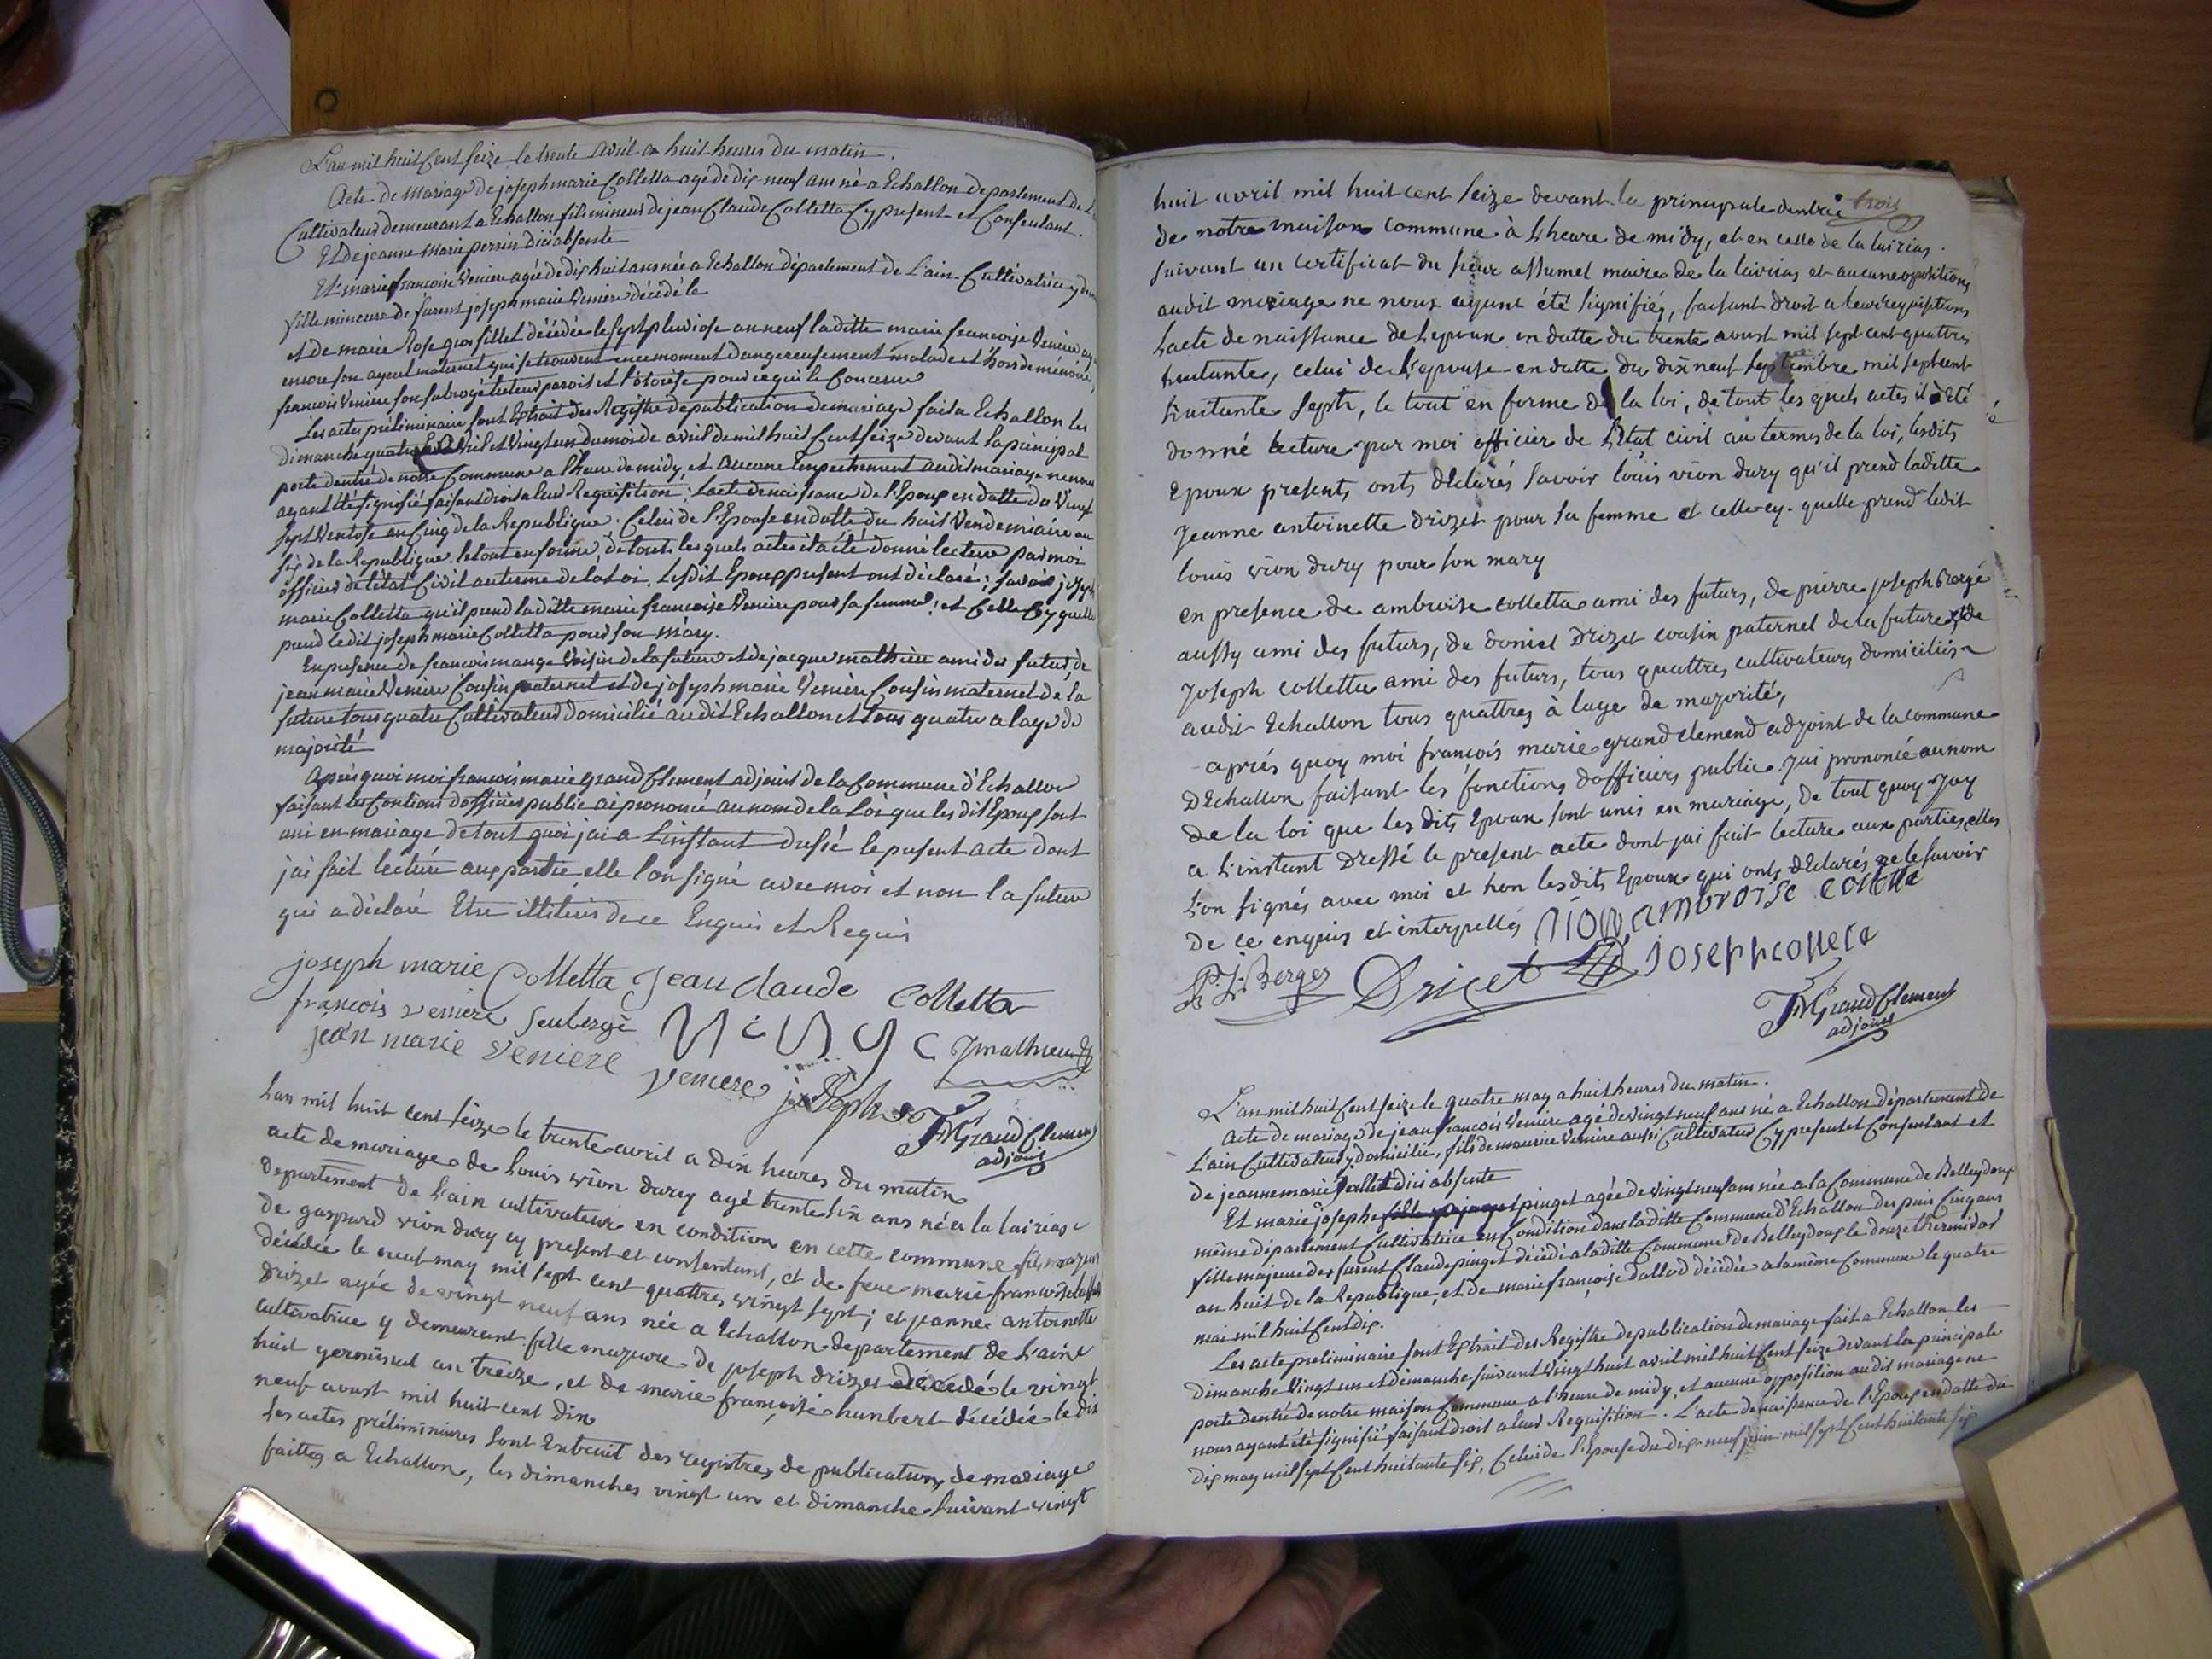 L'an mil huit Cent seize le trente avril a huit heures du matin.
Acte de Mariage de joseph marie Colletta agé de dix neuf ans né a Echallon departement de
Cultivateur demeurant a Echallon fils mineur de jean Claude Colletta Cy present et Consentant.
Et de jeanne Marie perrin dici absente
Et marie francoise Veniere agée de dix huit ans née a Echallon département de L'ain Cultivatrice y
fille mineure de furent joseph marie Veniere décédé le
et de marie Rose gros fillet décédée le sept pluviose an neuf laditte marie francoise Veniere
encore son ayeul maternel qui se trouvent en ce moment dangereusement malade et hors de mémoire,
francois Veniere son subrogé tuteur paroit et l'otorise pour ce qui le Concerne
Les actes préliminaire sont Extrait des Registre de publication de mariage fait a Echallon les
dimanche quatorze avril et Vingt un du mois de avril de mil huit Cent seize devant la principal
porte dentré de notre Commune a l'heure de midy, et aucune Empechement audit mariage ne nous
ayant été signifié faisant droit a leur Requisition; Lacte de naissance de l'Epoux en datte du Vingt
sept Ventose an Cinq de la Republique; Celui de l'Epouse en datte du huit Vendemiaire an
six de la Republique. le tout en forme, de touts les quels actes il a été donné lecture par moi
officier de l'état Civil au terme de la Loi. Lesdit Epoux present ont déclaré; savoir joseph
marie Colletta qu'il prend laditte marie francoise Veniere pour sa femme; et Celle Cy quelle
prend ledit joseph marie Colletta pour son mary.
En presence de francois mange Voisin de la future et de jacque mathieu ami des futur, de
jean marie Veniere Cousin paternel et de joseph marie Veniere Cousin maternel de la
future tous quatre Cultivateur domicilié audit Echallon et tous quatre a lage de
majorité
Après quoi moi francois marie Grand Clement adjoint de la Commune d'Echallon
faisant les fontions dofficier public ai prononcé au nom de la Loi que les dit Epoux sont
uni en mariage de tout quoi jai a Linstant dressé le present acte dont
jai fait lecture aux partie, elle l'on signé avec moi et non la future
qui a déclaré Etre illiteré de ce Enquis et Requis
joseph marie Colletta Jean Claude Colletta
francois veniere seubergé
jean marie veniere Jmathieu
veniere joseph
FMGrandClement
adjoint
Lan mil huit cent seize le trente avril a dix heures du matin
acte de mariage de Louis vion dury agé trente six ans né a la lairias
departement de L'ain cultivateur en condition en cette commune fils majeur
de gaspard vion dury cy present et consentant, et de feue marie francoise
décédée le neuf may mil sept cent quattres vingt sept; et jeanne antoinette
drizet agée de vingt neuf ans née a Echallon departement de L'ain
cultivatrice y demeurant fille majeure de joseph drizet décédé le vingt
huit germinal an treize, et de marie francoise humbert décédée le dix
neuf aoust mil huit cent dix
Les actes préliminaires sont Extrait des registres de publication de mariage
faittes a Echallon, les dimanches vingt un et dimanche suivant vingt
trois
huit avril mil huit cent seize devant la principale dentrée
de notre maison commune à Lheure de midy, et en celle de la lairias.
suivant un certificat du sieur assumel maire de la lairias et aucune opositions
audit mariage ne nous ayant été signifiés, faisant droit a leur requisitions
Lacte de naissance de Lepoux en datte du trente aoust mil sept cent quattres
huitante, celui de L'epouse en datte du dix neuf septembre mil sept cent
huitante septs, le tout en forme de la loi, de tout les quels actes il a Eté
donné lecture par moi officier de L'état civil au termes de la loi, lesdits
Epoux presents onts déclarés savoir Louis vion dury qu'il prend laditte
Jeanne antoinette drizet pour sa femme et celle-cy. quelle prend ledit
louis vion dury pour son mary
en presence de ambroise colletta ami des futurs, de pierre joseph Bergé
aussy ami des futurs, de daniel drizet cousin paternel de la future, et de
Joseph colletta ami des futurs, tous quattres cultivateurs domiciliés
audit Echallon tous quattres à lage de majorité,
aprés quoy moi françois marie grand clemend adjoint de la commune
d'Echallon faisant les fonctions d'officiers public. jai prononcé au nom
de la loi que les dits Epoux sont unis en mariage, de tout quoy Jay
a L'instant dressé le present acte dont jai fait lecture aux parties, elles
L'on signés avec moi et non lesdits Epoux qui onts déclarés ne le savoir
de ce enquis et interpellés vion ambroise colleta
P J Berger Drizet joseph colleta
FMGrandClement
adjoint
L'an mil huit Cent seize le quatre may a huit heures du matin.
Acte de mariage de jean francois Veniere agé de vingt neuf ans né a Echallon département de
L'ain Cultivateur y domicilié, fils de maurice Veniere aussi Cultivateur Cy present et Consentant et
de jeanne marie dici absente
Et marie josephe pinget agée de vingt neuf ans née a la Commune de Belleydoux
même département Cultivatrice en Condition dans laditte Commune d'Echallon depuis Cinq ans
fille majeure des furent Claude pinget décédé a laditte Commune de Belleydoux le douze thermidor
an huit de la Republique, et de marie françoise dallod décédée a la même Commune le quatre
mai mil huit Cent dix.
Les acte preliminaire sont Extrait des Registre de publication de mariage fait a Echallon les
dimanche Vingt un et dimanche suivant Vingt huit avril mil huit Cent seize devant la principale
porte dentré de notre maison Commune a l'heure de midy, et aucune opposition audit mariage ne
nous ayant été signifié faisant droit a leur Requisition. L'acte de naissance de l'Epoux en datte du
dix may mil sept Cent huitante six, Celui de l'Epouse du dix-neuf juin mil sept Cent huitante six